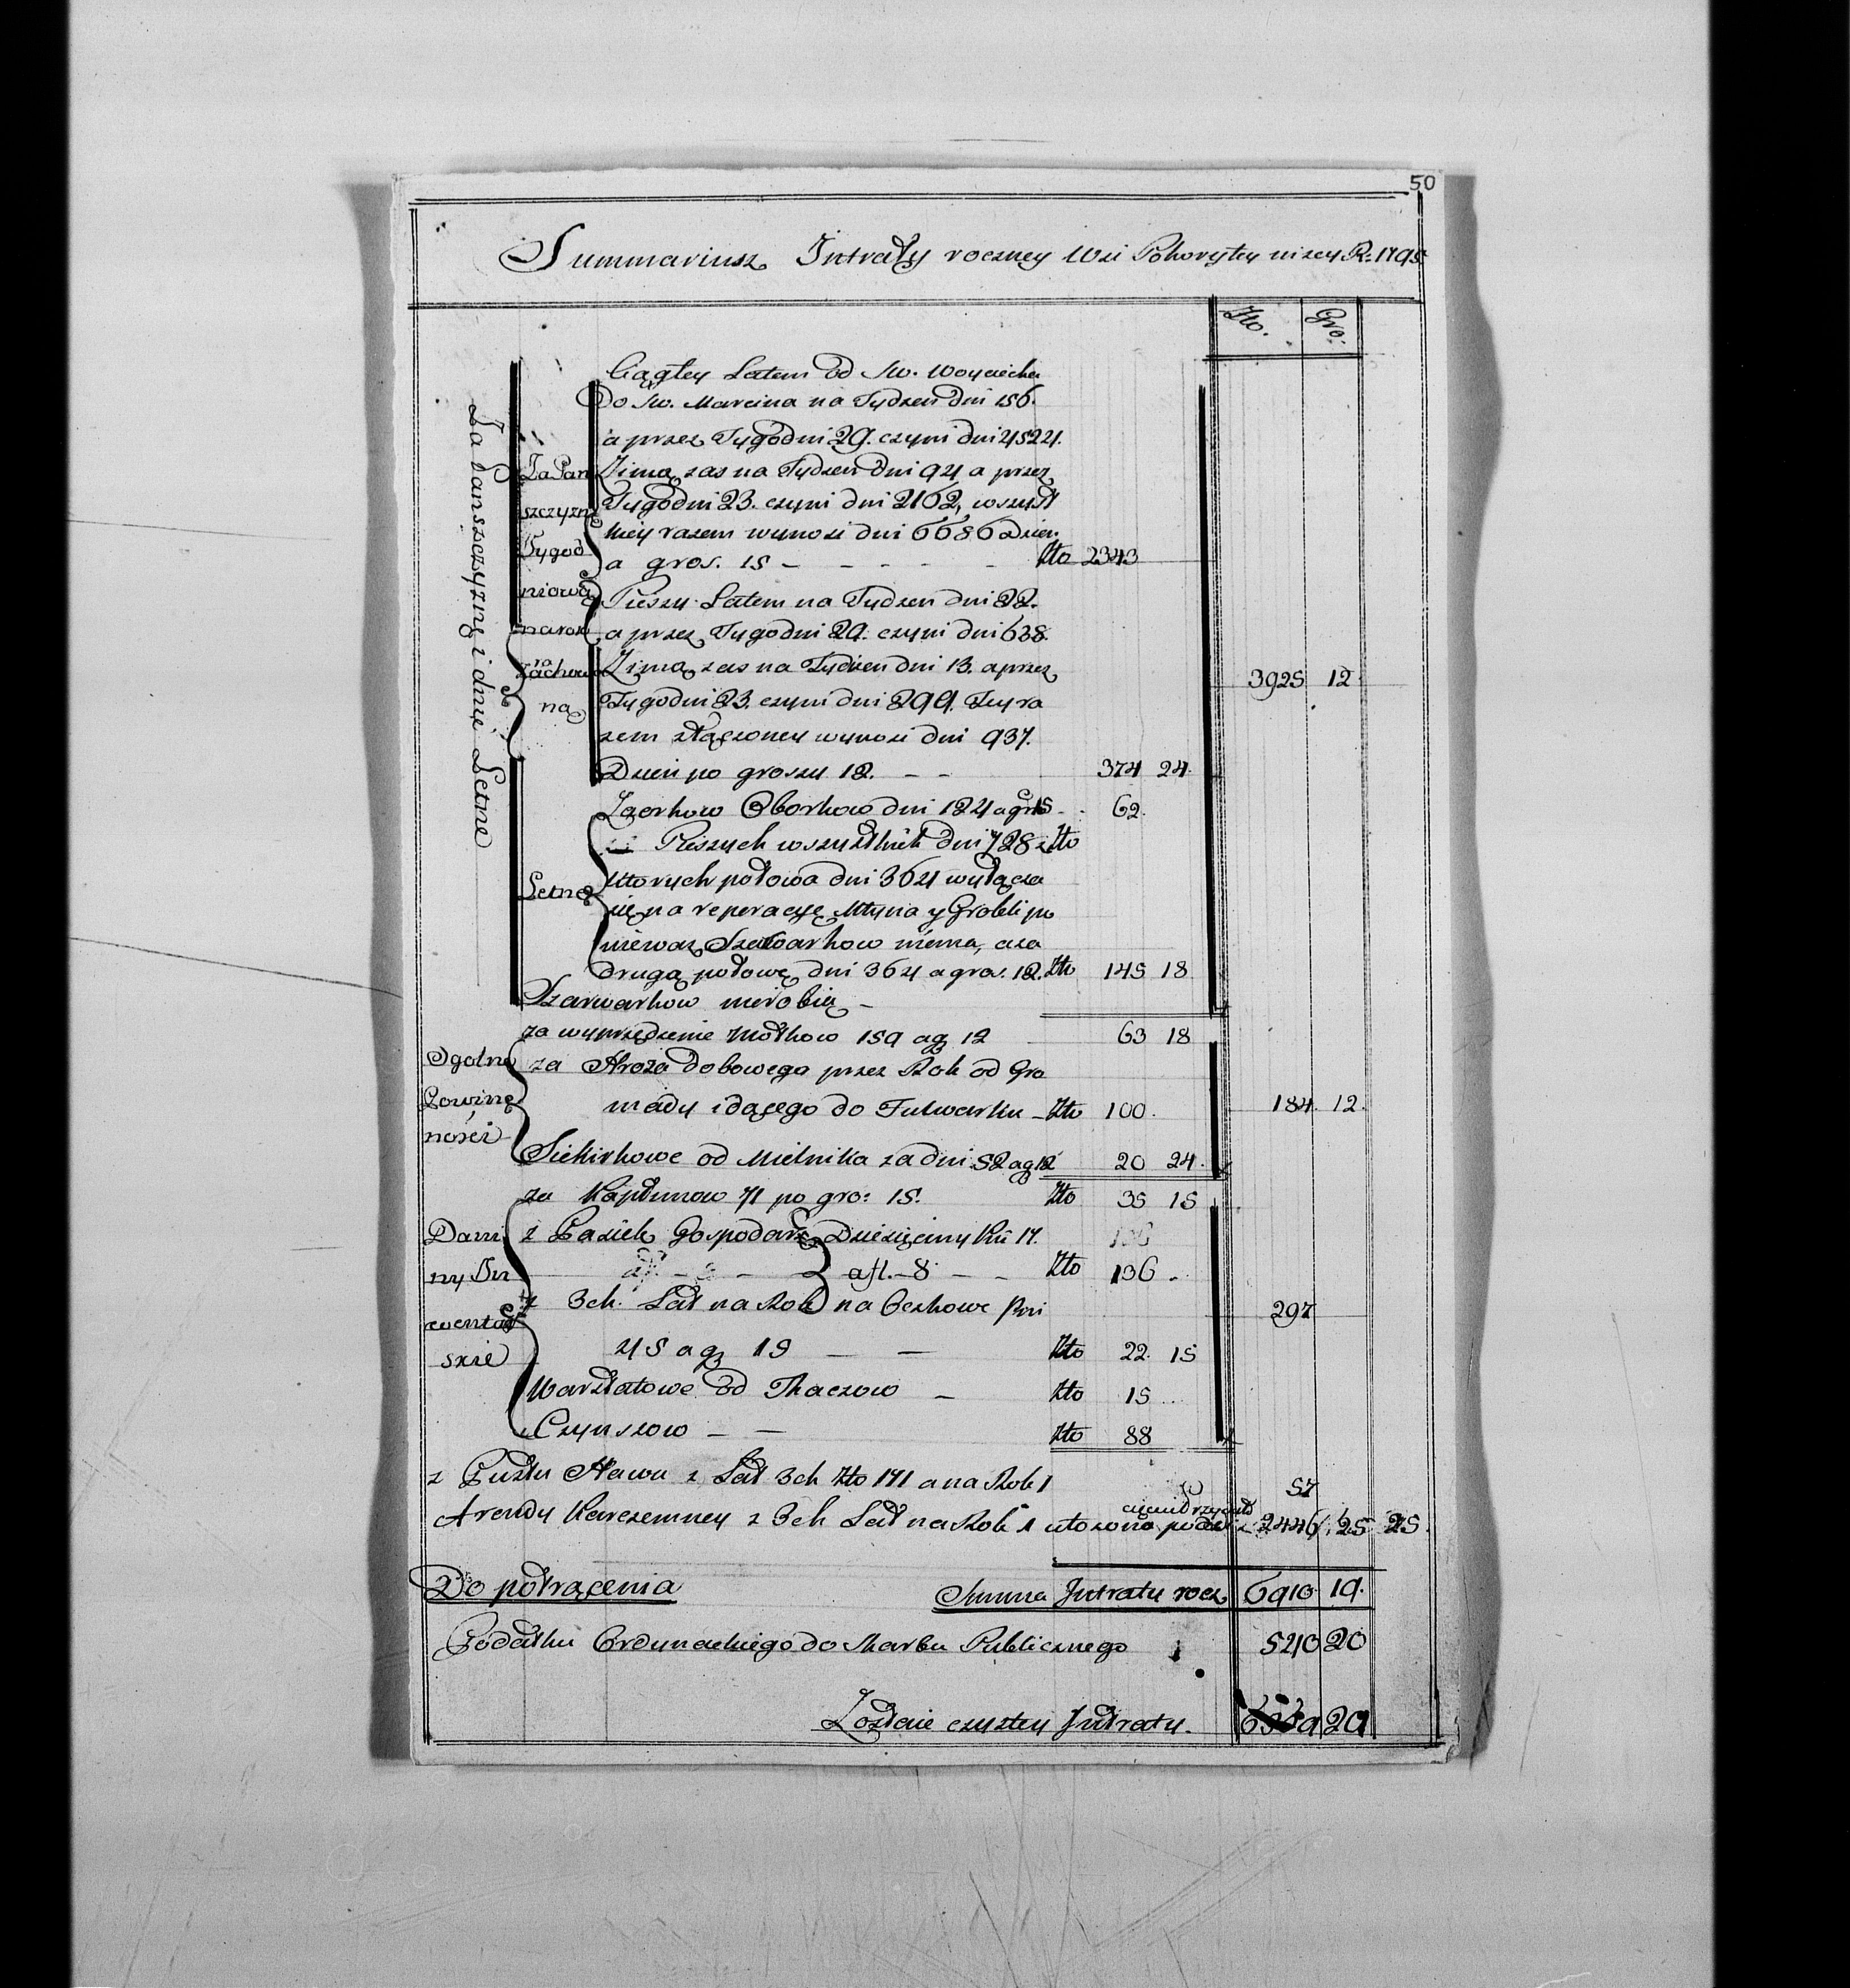 50
Summariusz Intraty roczney Wsi Pohoryłey niżey R: 1795
Zło. Gro:
Za Panszczyznę i dnie Letnie
Za Pan
szczyznę
Tygod
niową
na rok
rachowa
na
Ciągłey Latem od Sw. Woyciecha
Do Sw. Marcina na Tydzen dni 156.
a przez Tygodni 29. czyni dni 4524.
Zimą zas na Tydzen dni 94 a przez
Tygodni 23. czyni dni 2162, wszyst
kiey razem wynosi dni 6686 Dzien.
a gros. 15 - - - - - Zło 2343
Pieszy Latem na Tydzen dni 22.
a przez Tygodni 29. czyni dni 638.
Zimą zas na Tydzien dni 13. a przez
Tygodni 23. czyni dni 299. Tey ra
3925 12
zem złączoney wynosi dni 937.
Dzień po groszy 12. - - 374 24.
Zaorkow Oborkow dni 124 a gro 15 - 62.
Letnie
Pieszych wszystkich dni 728 z
ktorych połowa dni 364 wyłącza
się na reperacyę Młyna y Grobli po
nieważ Szarwarkow niema, a za
drugą połowę dni 364 a gro. 12. Zło 145 18
Szarwarkow nierobią -
Ogolne
Powin
ności
za wyprzędzenie Motkow 159 a g 12 63 18
za Stroża dobowego przez Rok od Gro
mady idącego do Fulwarku - Zło 100. 184. 12.
Siekirkowe od Mielnika za dni 52 a g 12 20 24.
Dani
ny In
wentar
skie
za Kapłunow 71 po gro: 15. Zło 35 15
z Pasiek Gospodars Dziesięciny Pni 17.
a fl. - 8 - - Zło 136 -
z 3ch. Lat na Rok na Oczkowe Pni
297
45 a g 15 - - Zło 22. 15
Warstatowe od Tkaczow - Zło 15 ...
Czynszow - - Zło 88
z Pustu Stawu z Lat 3ch Zło 171 a na Rok 1 57
Arendy Karczemney z 3ch Lat na Rok 1 ułożona 2446 25 25.
Do potrącenia Summa Intraty rocz 6910 19.
Podatku Ordynackiego do Skarbu Publicznego 540 20
Zostaie czystey Intraty. 29